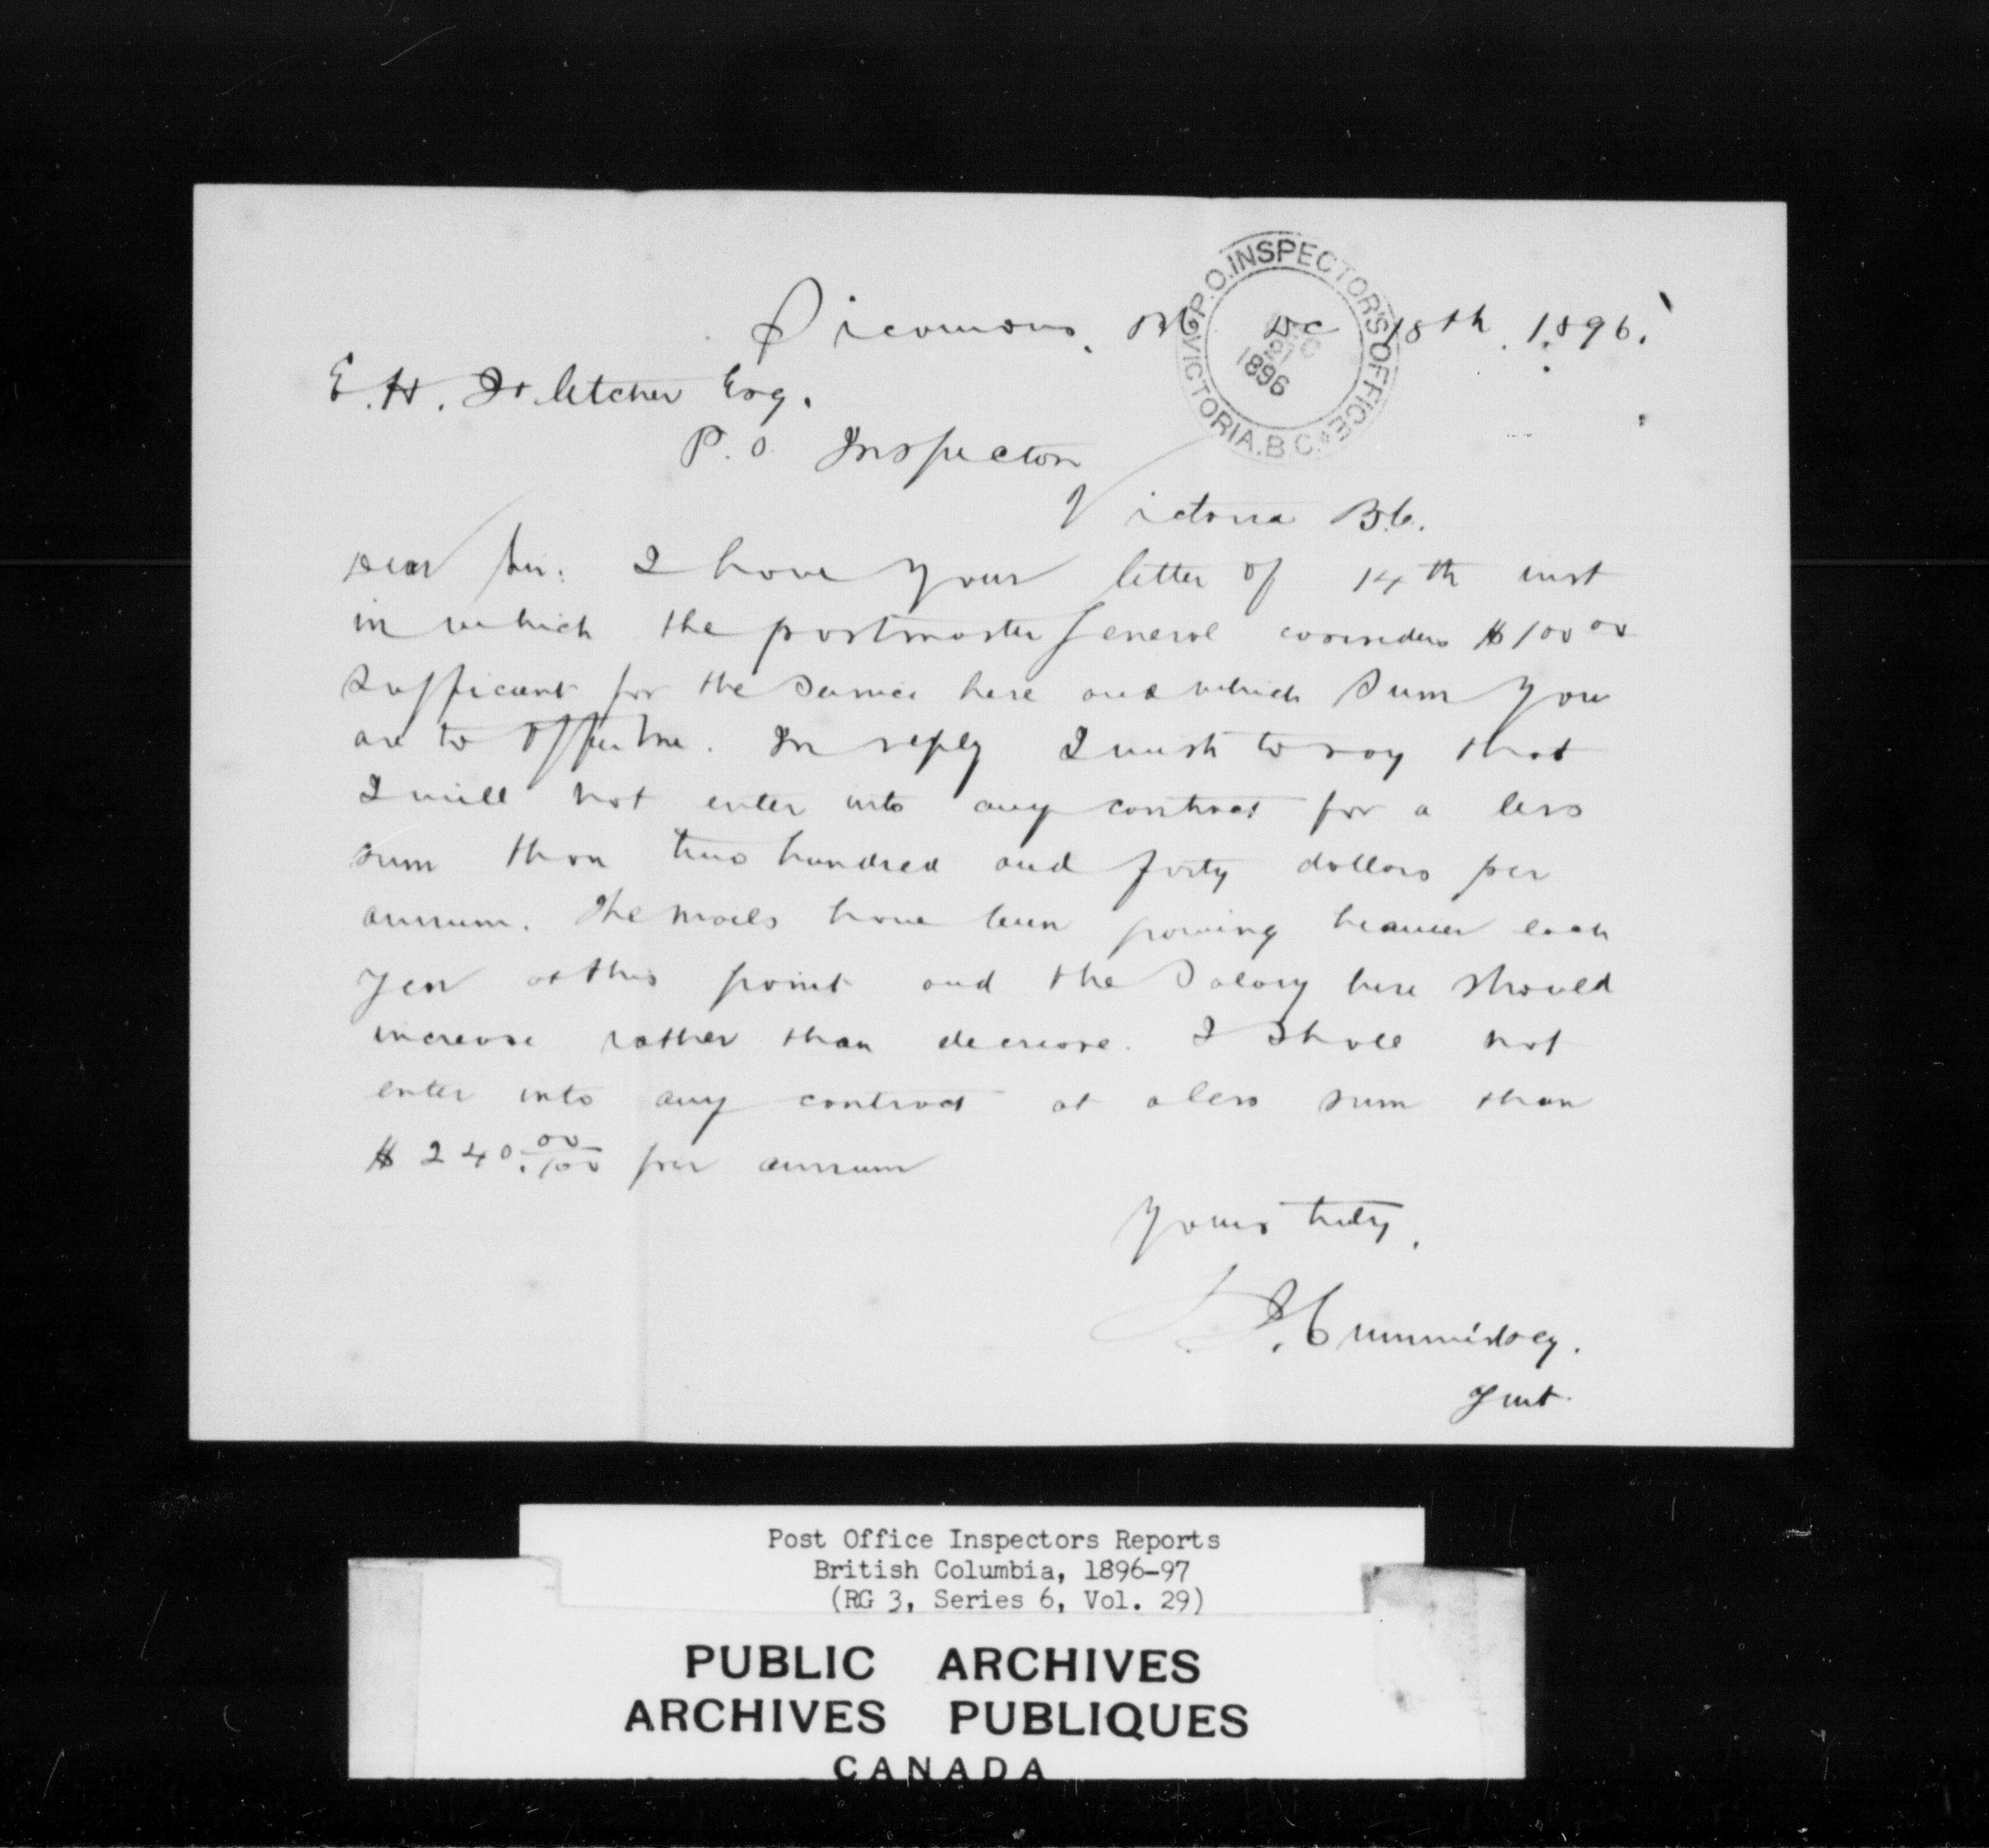 Sicamous, BC Dec 18th. 1896.
P.O. INSPECTOR'S OFFICE VICTORIA. B.C.
DEC
1896
E. H. Fletcher Esq.
P. O. Inspector
Victoria B.C.
Dear Sir: I have your letter of 14th inst
in which the postmaster General considers $100 00
sufficient for the service here and which sum you
are to offer me. In reply I wish to say that
I will not enter into any contract for a less
sum than two hundred and forty dollars per
annum. The mails have been growing heavier each
year at this point and the salary here should
increase rather than decrease. I shall not
enter into any contract at a less sum than
$240.00/100 per annum
Yours truly,
Post Office Inspectors Reports
British Columbia, 1896-97
(RG 3, Series 6, Vol. 29)
PUBLIC ARCHIVES
ARCHIVES PUBLIQUES
CANADA